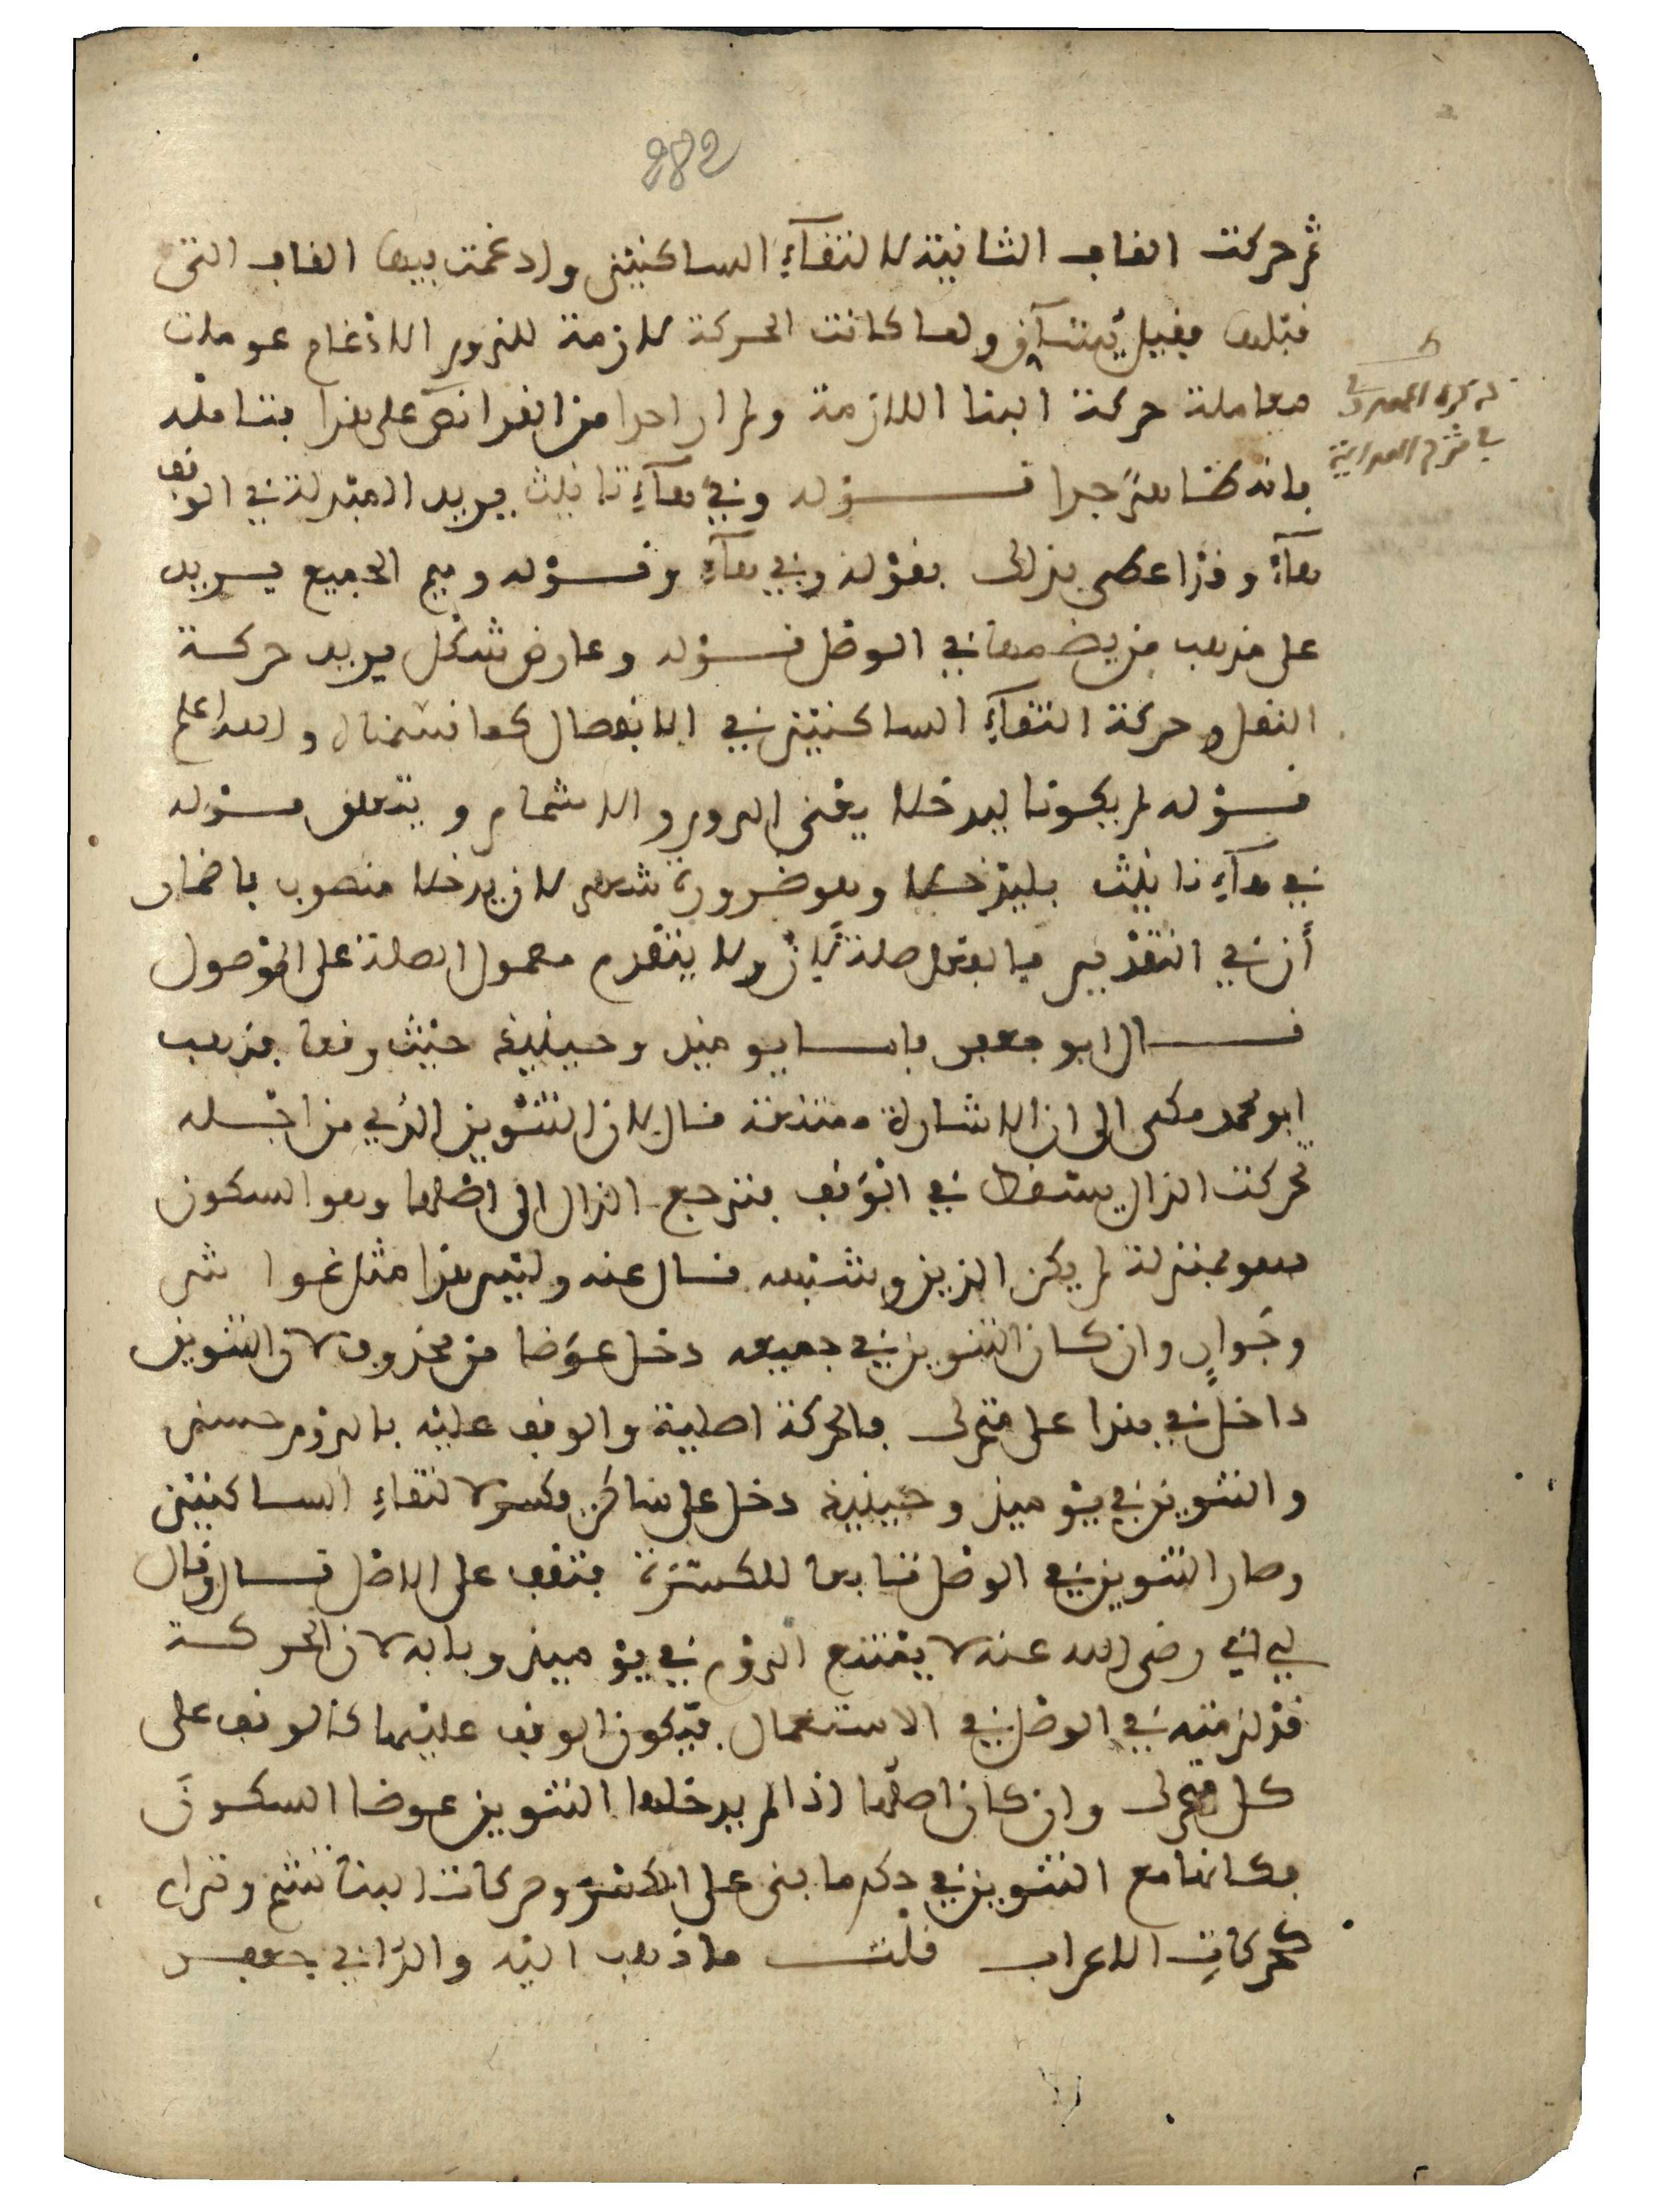 282
ثم حركت القاف الثانية لالتقآء الساكنين وادغمت بيها القاف التى
قبلها فقيل يشآق ولما كانت الحركة لازمة للزوم الادغام عوملت
معاملة حركة البنا اللازمة ولم ار احدا من القرا نص على هذا فتامله
ذكره المهدوى
فى شرح الهداية
فانه ظاهر جدا قـوله وفي هآء تانيث يريد المبدلة في الوقف
هآء وقد اعطى بذلك بقوله وفي هآء وقـوله وميم الجميع يـريد
على مذهب من يضمها في الوصل قـوله وعارض شكل يريد حركـة
النقل وحركة التقآء الساكنين في الانفصال كما قسمنا والله اعلم
قـوله لم يكونا ليدخلا يعنى الروم والاشمام ويتعلق قـوله
في هآء تانيث بليدخـلا وهو ضرورة شعر لان يدخلا منصوب باضمار
أن في التقدير فما بعدها صلة لأن ولا يتقدم معمول الصلة على الموصول
قـال ابو جعفر فامـا يوميذ وحينيذ حيث وقعا فذهب
ابو محمد مكى الى ان الاشارة ممتنعة قال لان التنوين الذي من اجـله
تحركت الذال يسقط في الوقف فترجع الذال الى اصلها وهو السكون
فهو بمنزلة لم يكن الذين وشبهه قـال عنه وليس هذا مثل غوا ش
وجَوارٍ وان كـان التنوين في جميعه دخـل عوضا من محذوف لان التنوين
داخل في هذا على متحرك فالحركة اصلية والوقف عليه بالروم حسن
والتنوين في يوميذ وحينيذ دخل على ساكن فكسر لالتقاء الساكنين
وصار التنوين في الوصل تابعا للكسرة فتقف على الاصل قـال وقال
لى ابي رضى الله عنه لا يمتنع الروم في يوميذ وبابه لان الحركـة
قد لزمته في الوصل في الاستعمال فيكون الوقف عليهما كالوقف على
كـل متحرك وان كان اصلها اذا لم يدخلها التنوين عوضا السكـونَ
فكانها مع التنوين في حكم ما بنى على الكسر وحركات البنا تشم وترام
كحركاتِ الاعراب قلت ما ذهب اليه والد ابي جعفـر